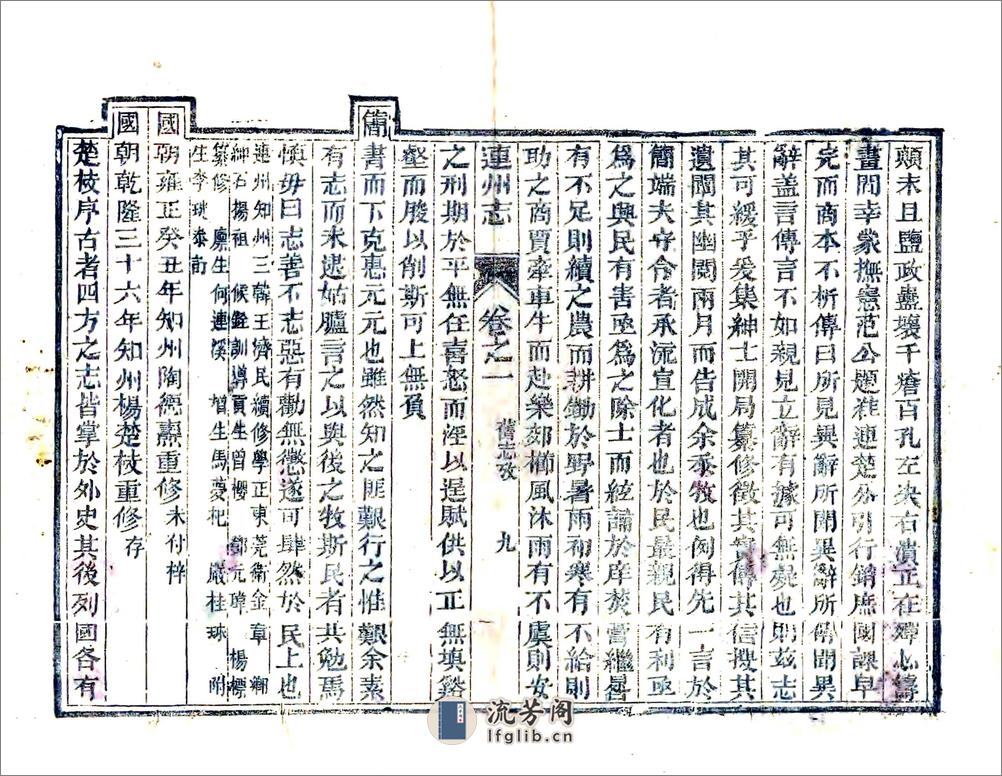 顛末且鹽政蠱壞千瘡百孔左決右潰正在殫心籌
畫間幸蒙撫憲范公題准連楚分引行銷庶國課早
完而商本不析傳曰所見異辭所聞異辭所傳聞異
辭蓋言傳言不如親見立辭有據可無毀也則茲志
其可緩乎爰集紳士開局纂修徵其實傳其信搜其
遺闡其幽閱兩月而告成余忝牧也例得先一言於
簡端夫守令者承流宣化者也於民最親民有利亟
為之興民有害亟為之除士而絃誦於庠焚膏繼晷
有不足則續之農而耕鋤於野暑雨祁寒有不給則
助之商賈牽車牛而赴樂郊櫛風沐雨有不虞則安
連州志 卷之一 舊志攷 九
之刑期於平無任喜怒而淫以逞賦供以正無填谿
壑而朘以削斯可上無負
舊
書而下克惠元元也雖然知之匪艱行之惟艱余素
有志而未逮姑臚言之以與後之牧斯民者共勉焉
慎毋曰志善不志惡有勸無懲遂可肆然於民上也
連州知州三韓王濟民續修學正東莞衛金章鄉
紳石揚祖候銓訓導貢生曾櫻鄧元瑋楊標
纂修廩生何連溪增生馬菱杞嚴桂珠附
生李珖泰衢
國朝雍正癸丑年知州陶德燾重修未付梓
國朝乾隆三十六年知州楊楚枝重修存
楚枝序古者四方之志皆掌於外史其後列國各有
流芳阁
lfglib.cn